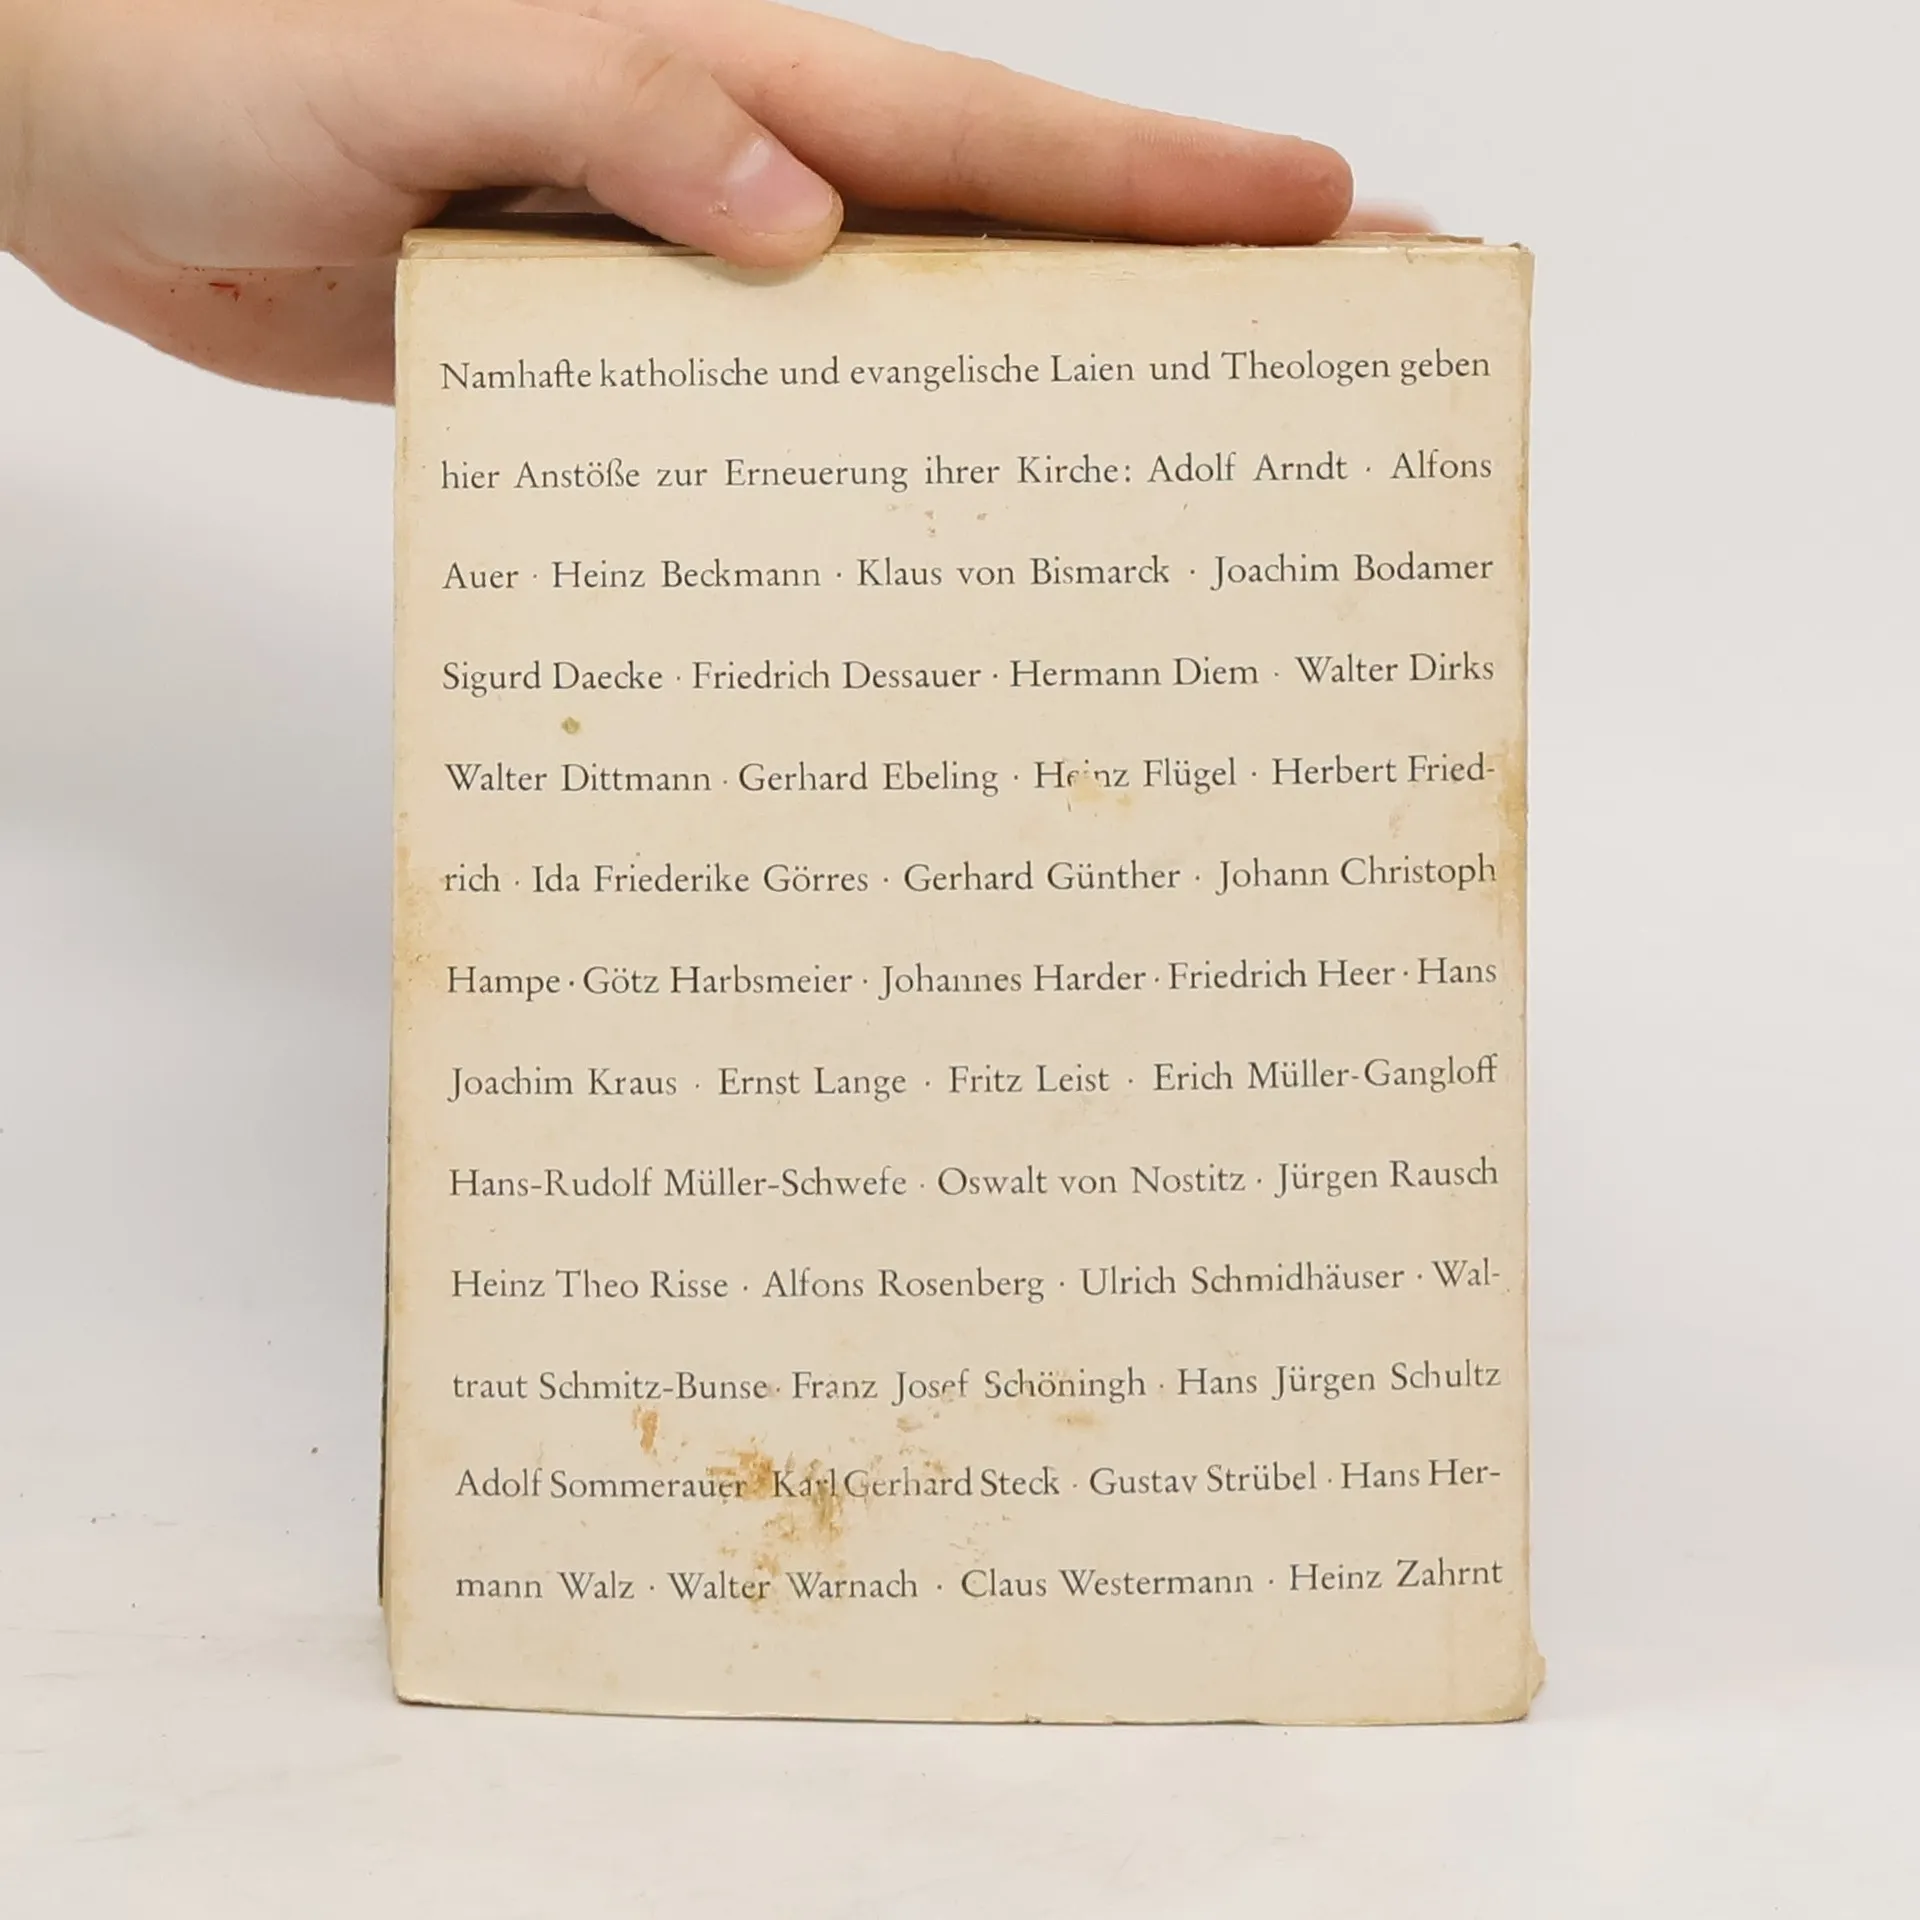 Namhafte katholische und evangelische Laien und Theologen geben
hier Anstöße zur Erneuerung ihrer Kirche: Adolf Arndt · Alfons
Auer · Heinz Beckmann · Klaus von Bismarck · Joachim Bodamer
Sigurd Daecke · Friedrich Dessauer · Hermann Diem · Walter Dirks
Walter Dittmann · Gerhard Ebeling · Heinz Flügel · Herbert Fried-
rich · Ida Friederike Görres · Gerhard Günther · Johann Christoph
Hampe · Götz Harbsmeier · Johannes Harder · Friedrich Heer · Hans
Joachim Kraus · Ernst Lange · Fritz Leist · Erich Müller-Gangloff
Hans-Rudolf Müller-Schwefe · Oswalt von Nostitz · Jürgen Rausch
Heinz Theo Risse · Alfons Rosenberg · Ulrich Schmidhäuser · Wal-
traut Schmitz-Bunse · Franz Josef Schöningh · Hans Jürgen Schultz
Adolf Sommerauer · Karl Gerhard Steck · Gustav Strübel · Hans Her-
mann Walz · Walter Warnach · Claus Westermann · Heinz Zahrnt